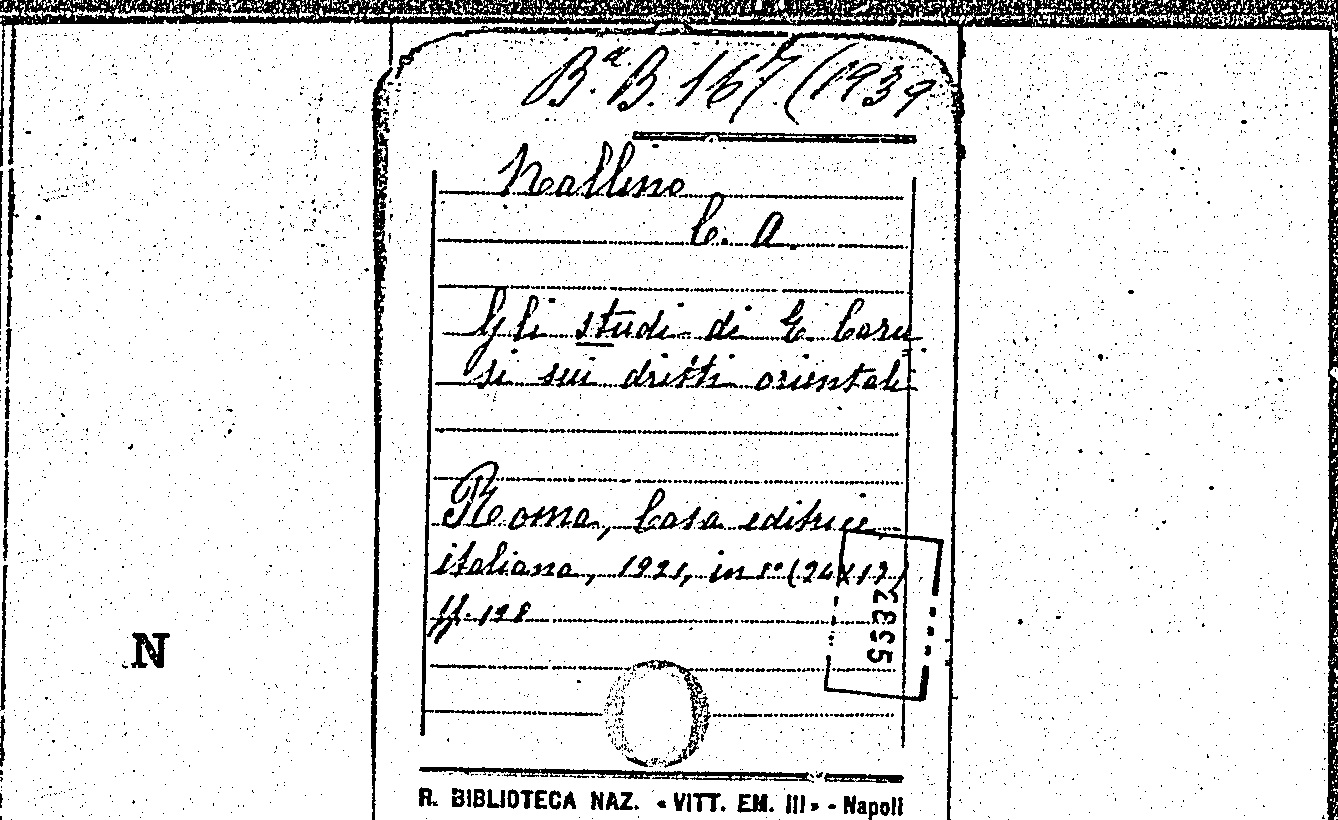 B.ª B. 167. (1939
Nallino
C. A.
Gli studi di E. Caru
si sui diritti orientali
Roma, Casa editrice
italiana, 1921, in 8° (24x17)
pp. 198
N
R. BIBLIOTECA NAZ. «VITT. EM. III» - Napoli